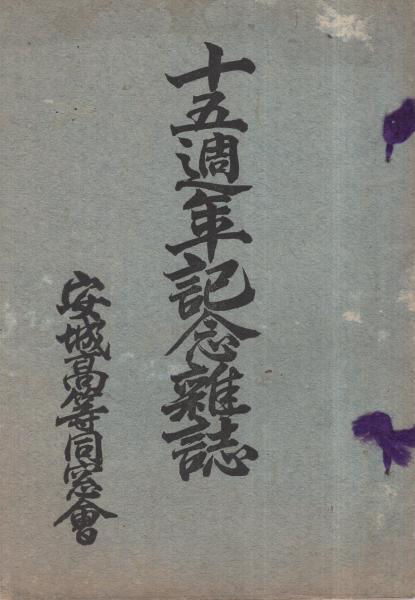 十五週年記念雜誌
安城高等同窓會